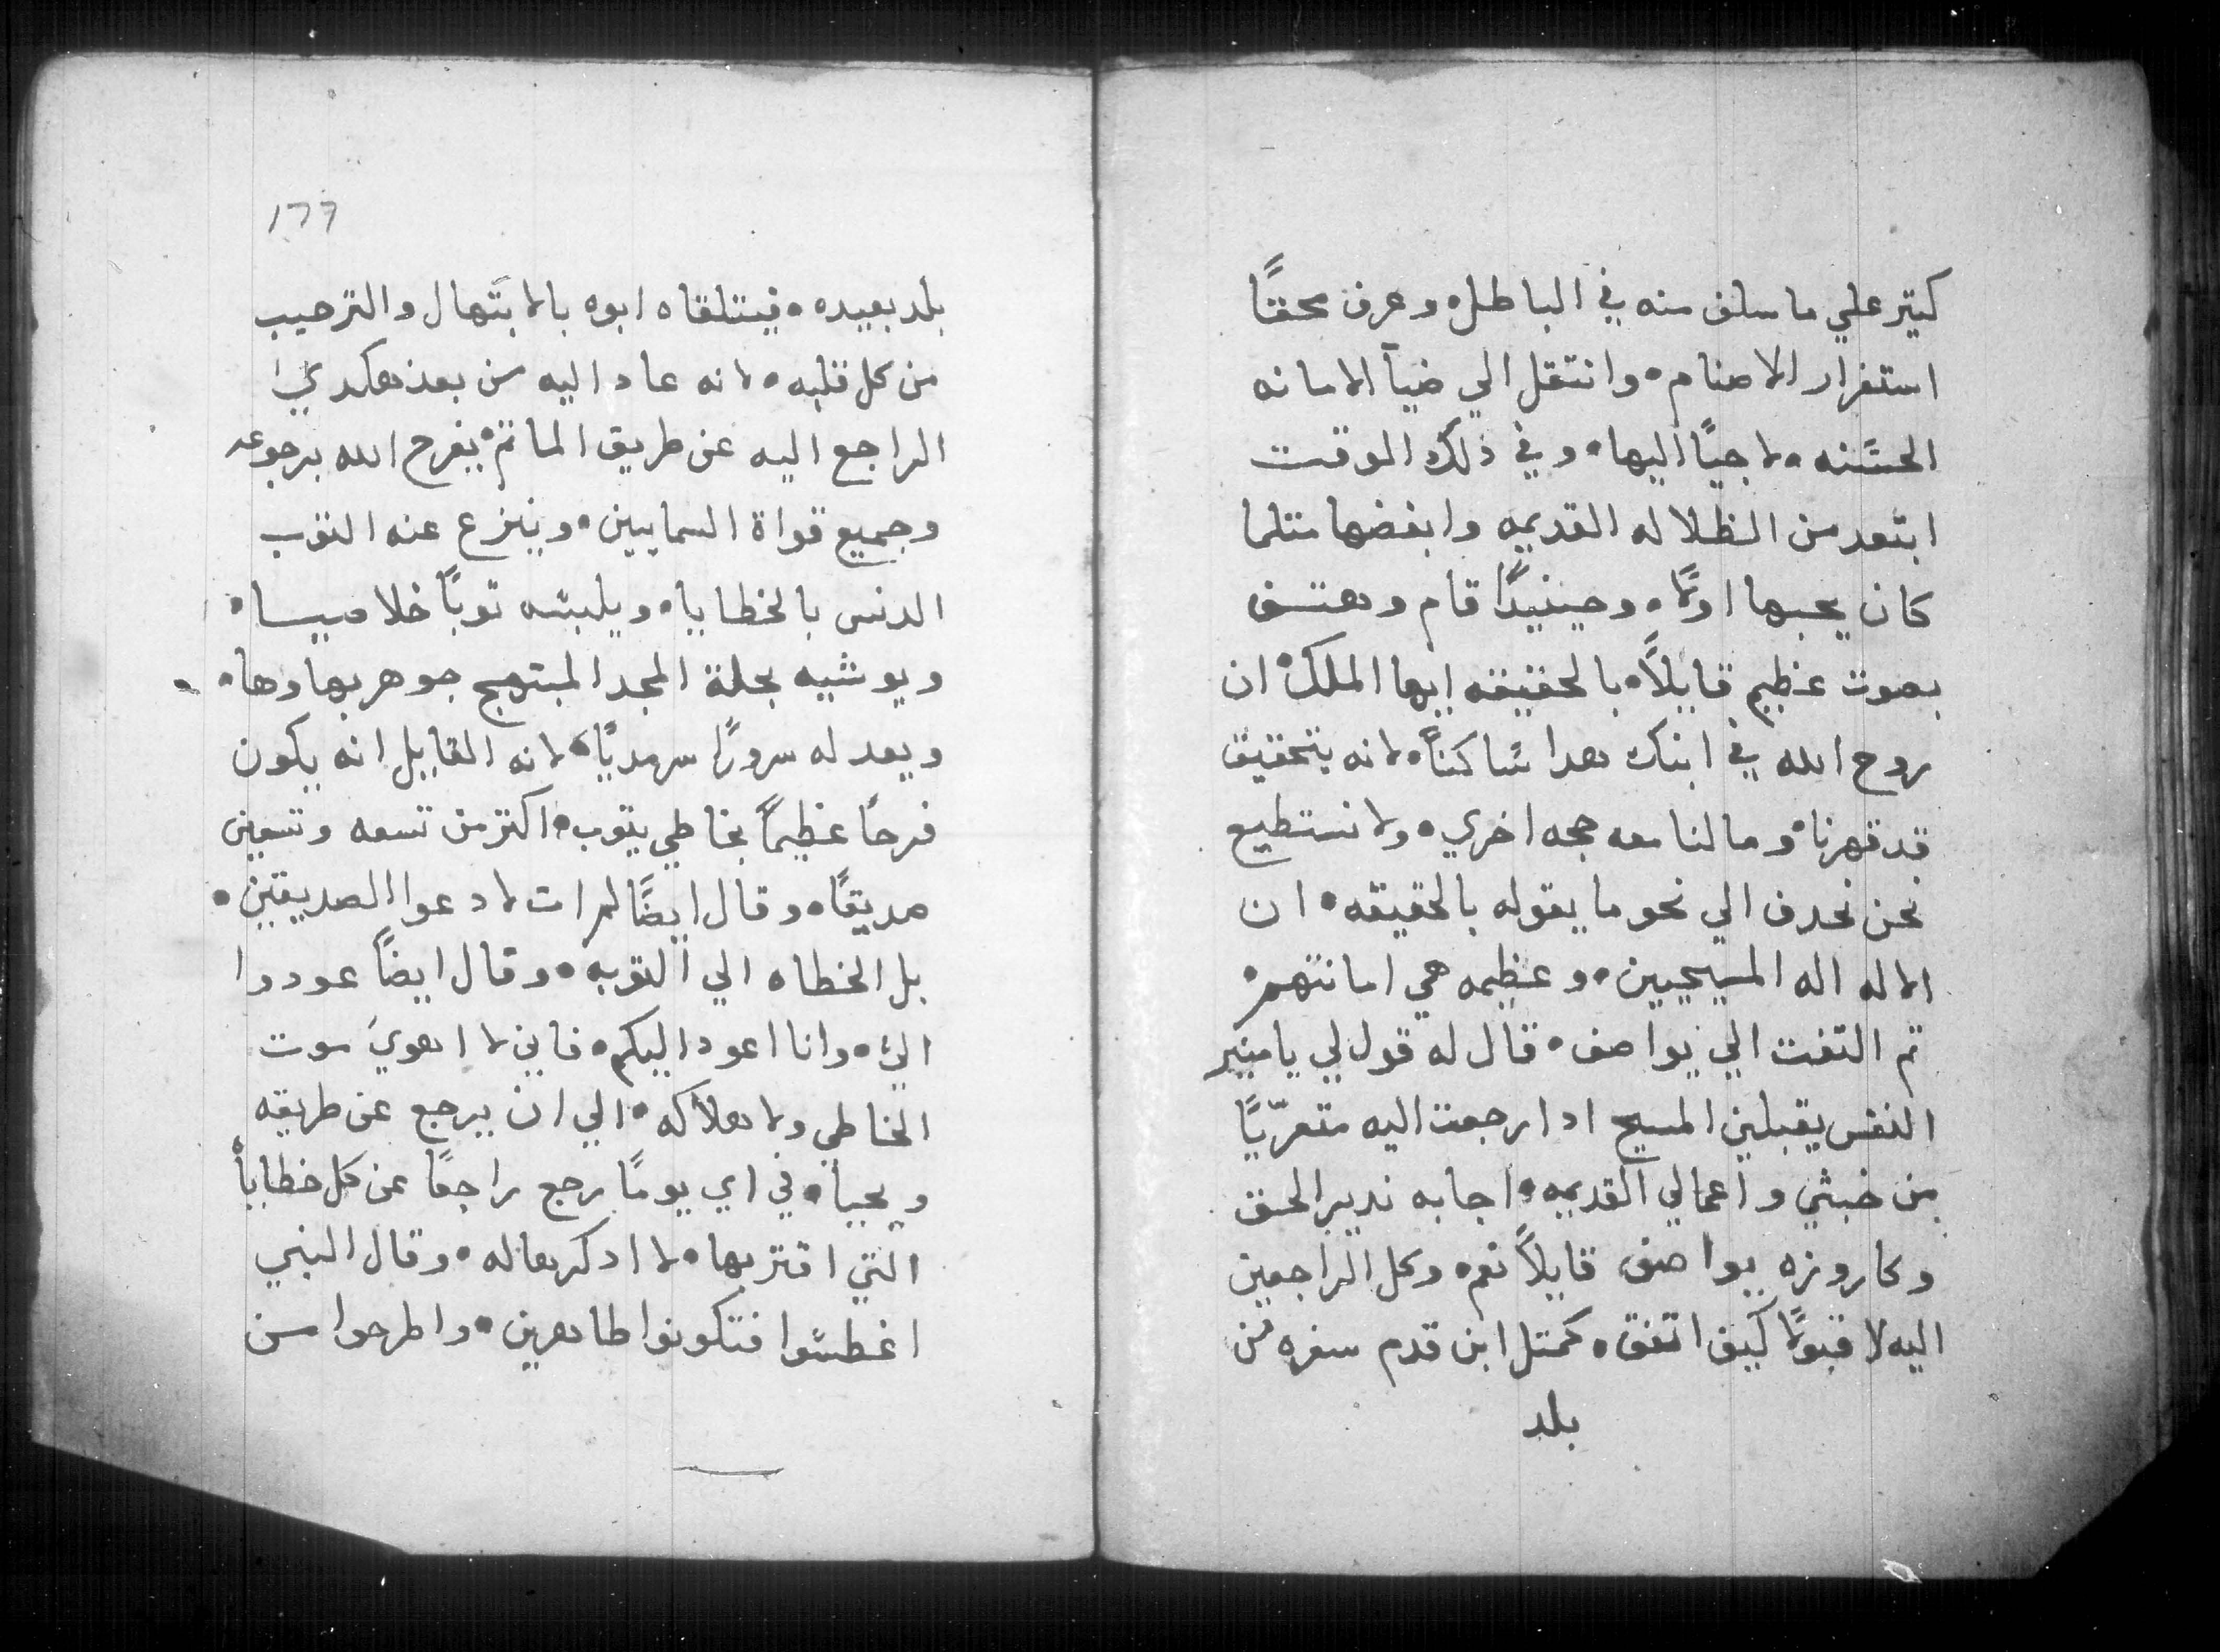 كتير علي ما سلف منه في الباطل۰ وعرف محققًا
استغرار الاصنام۰ وانتقل الي ضيآ الامانه
الحسنه۰ لاجيًا اليها۰ وفي ذلك الوقت
ابتعد من الظلاله القديمه وابغضها متلما
كان يحبها اولًا۰ وحينيدًا قام وهتف
بصوت عظيم قايلًا۰ بالحقيقه ايها الملك۰ ان
روح الله في ابنك هدا ساكنًا۰ لانه بتحقيق
قد قهرنا۰ وما لنا معه حجه اخري۰ ولا نستطيع
نحن نحدف الي نحو ما يقوله بالحقيقه۰ ان
الاله اله المسيحيين۰ وعظيمه هي امانتهم۰
تم التفت الي يواصف۰ قال له قول لي يا منير
النفس يقبلني المسيح ادا رجعت اليه متعرّيًا
من خبثي واعمالي القديمه۰ اجابه ندير الحق
وكاروزه يواصف قايلًا نعم۰ وكل الراجعين
اليه لا قبولًا كيف اتفق۰ كمتل ابن قدم سفره من
بلد
١٦٦
بلد بعيده۰ فيتلقاه ابوه بالابتهال والترحيب
من كل قلبه۰ لانه عاد اليه من بعد هكدي
الراجع اليه عن طريق الماتم۰ يفرح الله برجوعه
وجميع قواة السماييين۰ وينزع عنه التوب
الدنس بالخطايا۰ ويلبسه توبًا خلاصيا۰
ويوشيه بحلة المجد المبتهج جوهر بهاوها۰
ويعد له سرورًا سرمديًا۰ لانه القايل انه يكون
فرحًا عظيمًا بخاطي يتوب۰ اكتر من تسعه وتسعين
صديقًا۰ وقال ايضًا لم ات لادعوا الصديقين۰
بل الخطاه الي التوبه۰ وقال ايضًا عودوا
اليّ۰ وانا اعود اليكم۰ فاني لا اهوي موت
الخاطي ولا هلاكه۰ الي ان يرجع عن طريقه
ويحيا۰ في اي يومًا رجع راجعًا عن كل خطاياه
التي اقتربها۰ لا ادكرها له۰ وقال النبي
اغطسوا فتكونوا طاهرين۰ واطرحوا من